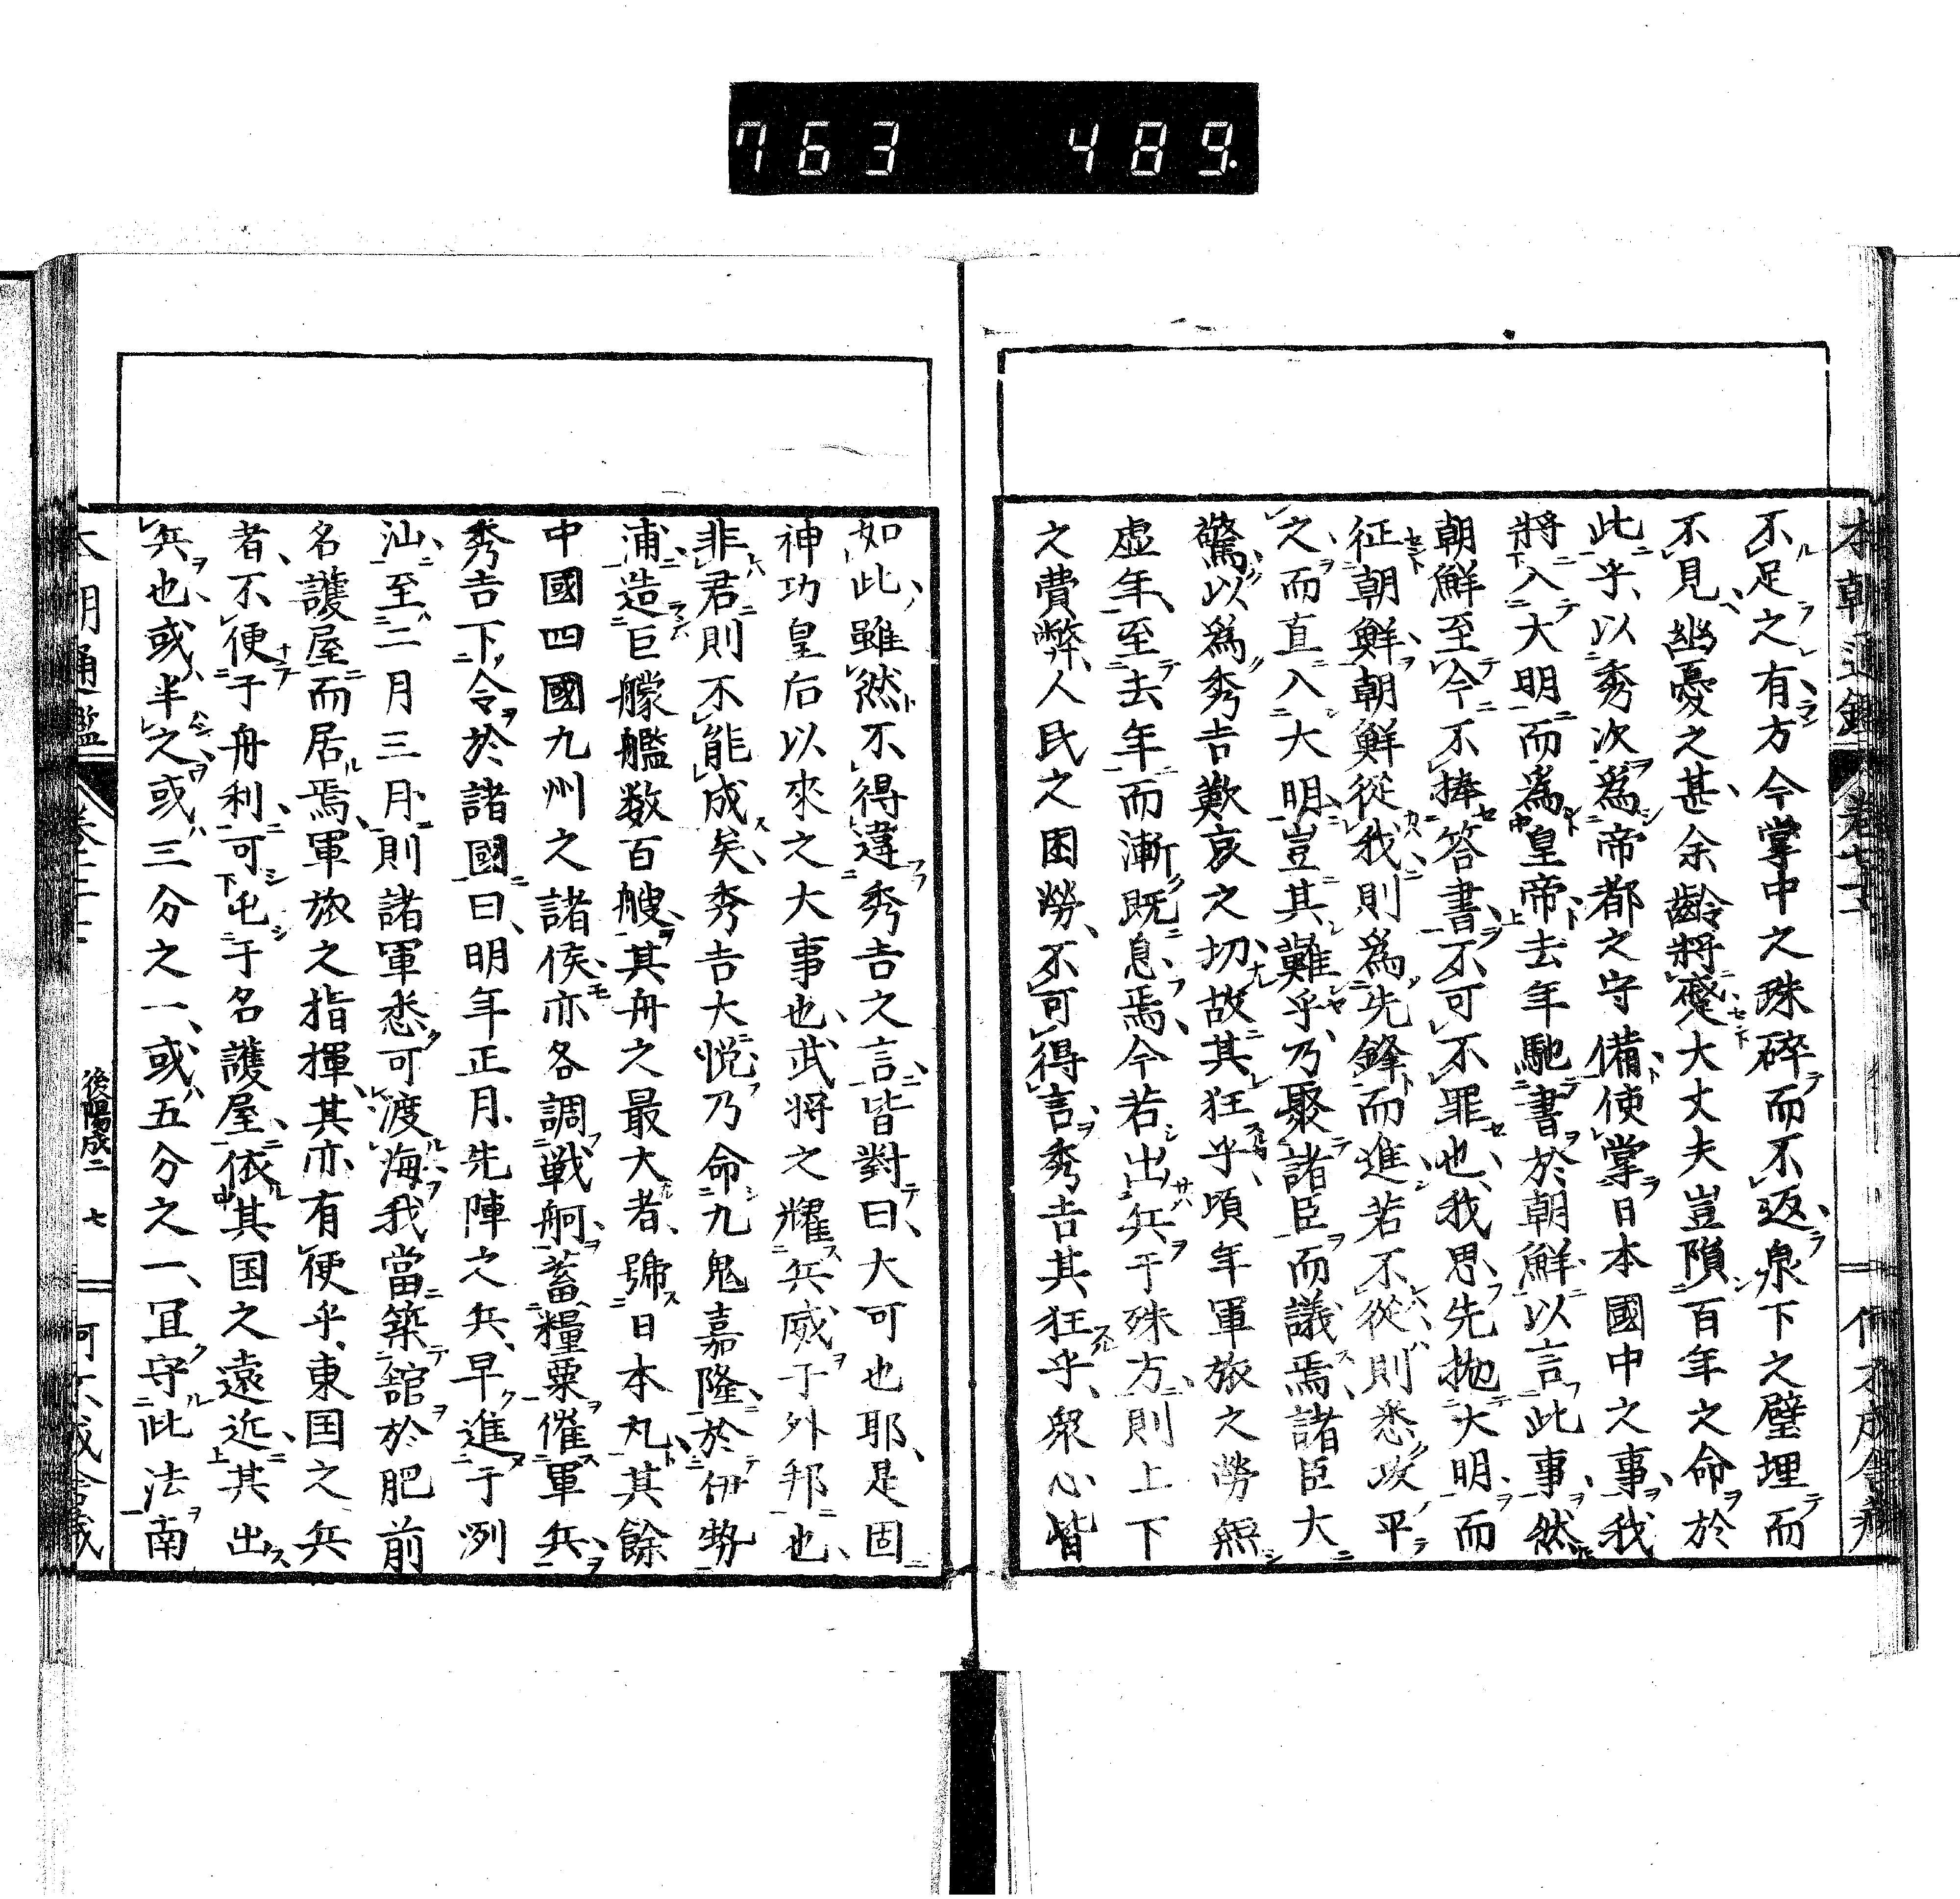 763 489.
不足之有方今掌中之珠碎而不返泉下之璧埋而
不見幽憂之甚余齡將殘大丈夫豈隕百年之命於
此乎以秀次為帝都之守備使掌日本國中之事我
將入大明而為皇帝去年馳書於朝鮮以言此事然
朝鮮至今不捧答書不可不罪也我思先抛大明而
征朝鮮朝鮮從我則為先鋒而進若不從則悉攻平
之而直入大明豈其難乎乃聚諸臣而議焉諸臣大
驚以為秀吉歎哀之切故其狂乎頃年軍旅之勞無
虛年至去年而漸既息焉今若出兵于殊方則上下
之費弊人民之困勞不可得言秀吉其狂乎衆心皆
如此雖然不得違秀吉之言皆對曰大可也耶是固
神功皇后以來之大事也武將之耀兵威于外邦也
非君則不能成矣秀吉大悦乃命九鬼嘉隆於伊勢
浦造巨艨艦数百艘其舟之最大者號日本丸其餘
中國四國九州之諸侯亦各調戦舸蓄糧粟催軍兵
秀吉下令於諸國曰明年正月先陣之兵早進于咧
汕至二月三月則諸軍悉可渡海我當築舘於肥前
名護屋而居焉軍旅之指揮其亦有便乎東国之兵
者不便于舟利可屯于名護屋依其国之遠近其出
兵也或半之或三分之一或五分之一冝守此法南
後陽成二 七